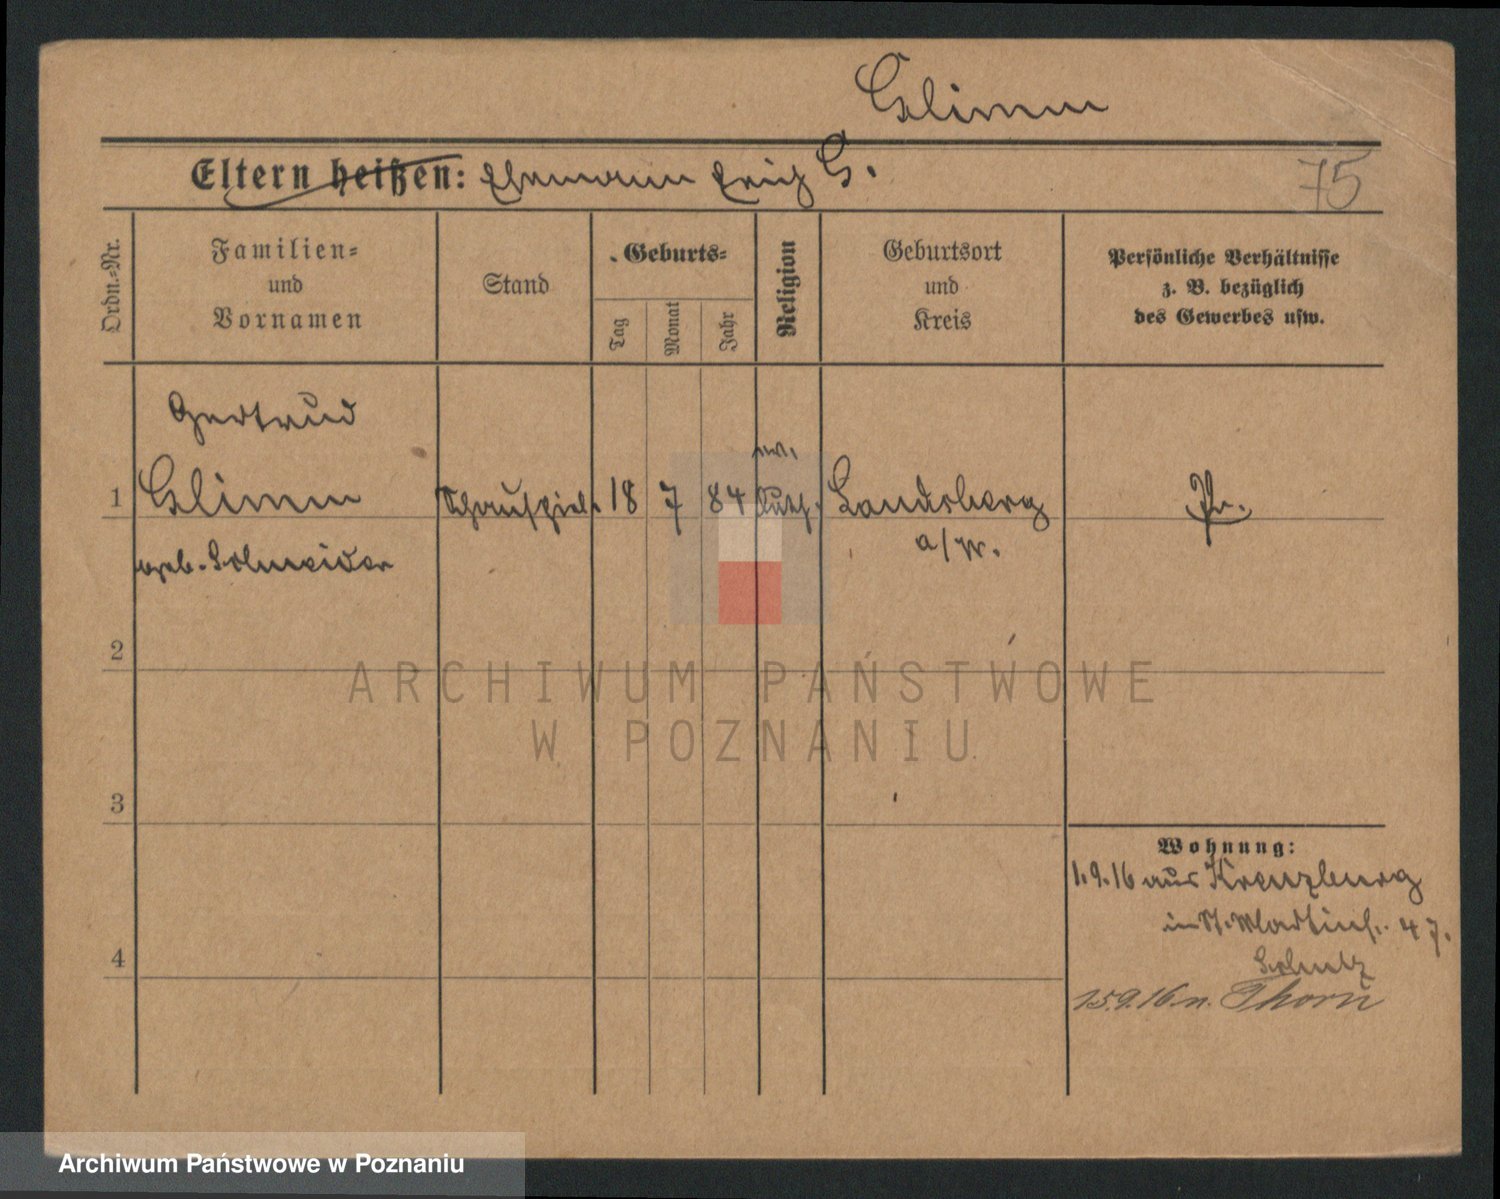 Glimm
Eltern heißen: Ehemann Erich G.
75
Ordn.=Nr.
Familien=
und
Vornamen
Stand
Geburts=
Tag
Monat
Jahr
Religion
Geburtsort
und
Kreis
Persönliche Verhältnisse
z. B. bezüglich
des Gewerbes usw.
Gertrud
1 Glimm
geb. Schneider
Schauspiel.
18 7 84
ev.
luth.
Landsberg
a/W.
Pr.
2
3
4
Wohnung:
1.9.16 aus Kreuzburg
in St. Martinst. 47.
Schulz
15.9.16 n. Thorn
ARCHIWUM PAŃSTWOWE
W POZNANIU
Archiwum Państwowe w Poznaniu